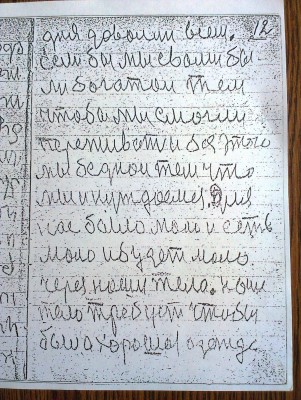 для довольни всем. 12
Если бы мы свами бы
ли богатои тем
чтобы мы смогли
переживати без этого
мы беднои тем что
мы и нуждаемся. Для
нас было мало и есть
мало и будет мало
через нашу тело. Наше
тело требует чтобы
было хорошая одежда